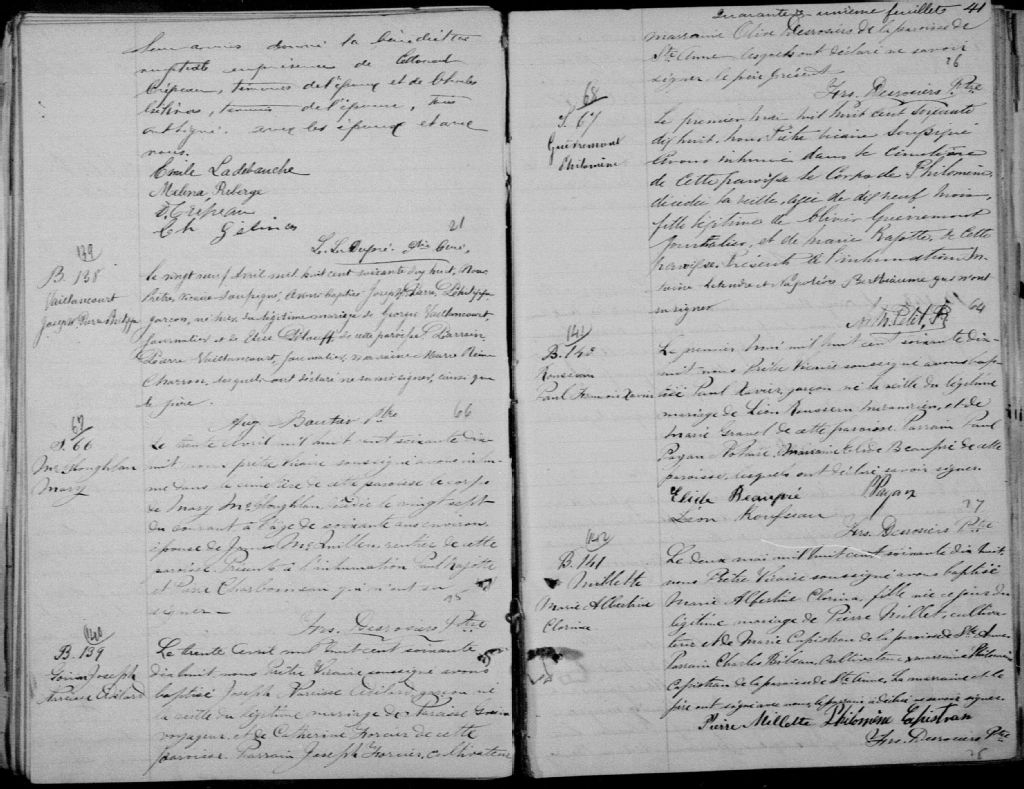 leur avons donné la bénédiction
nuptiale en présence de
Crépeau, témoin de l'époux et de Charles
Gélinas, témoin de l'épouse, tous
ont signé avec les époux et avec
nous.
Emile Ladebauche
Melina Reberge
Crépeau
Ch Gélinas
21
Ptre Curé,
139
B. 138
Vaillancourt
Joseph Pierre Philippe
Le vingt neuf Avril mil huit cent soixante dix huit, Nous
Prêtre, Vicaire soussigné, avons baptisé Joseph Pierre Philippe
garçon, né hier du légitime mariage de George Vaillancourt
journalier et de Elise de cette paroisse. Parrain
Pierre Vaillancourt, journalier, marraine Marie
Charron, lesquels ont déclaré ne savoir signer, ainsi que
le père.
Ptre 66
67
S. 66
McLoughlan
Mary
Le trente Avril mil huit cent soixante dix
huit nous prêtre Vicaire soussigné avons inhu-
mé dans le cimetière de cette paroisse le corps
de Mary McGloughlan décédée le vingt sept
du courant à l'âge de soixante ans environ,
épouse de James McQuillen, rentier de cette
paroisse. Présents à l'inhumation Paul Rajotte
et Pierre Charbonneau qui n'ont su
signer—
Frs. Desrosiers Ptre
140
B. 139
Joseph
Le trente avril mil huit cent soixante
dix huit nous Prêtre Vicaire soussigné avons
baptisé Joseph garçon né
la veille du légitime mariage de
voyageur, et de Catherine Forcier de cette
paroisse. Parrain Joseph Forcier, cultivateur
Quarante et unième feuillets 41
marraine Olive Desrosiers de la paroisse de
Ste Anne lesquels ont déclaré ne savoir
signer. le père présent.
26
Frs. Desrosiers Ptre
68
S. 67
Guèvremont
Philomène
Le premier mai mil huit cent soixante
dix huit, nous Prêtre Vicaire soussigné
avons inhumé dans le cimetière
de cette paroisse le Corps de Philomène,
décédée la veille, agée de dix neuf mois,
fille légitime de Olivier Guèvremont
journalier, et de Marie Rajotte, de cette
paroisse. Présents à l'inhumation
et Napoléon Berthiaume qui n'ont
su signer
Ptre
141
B. 140
Rousseau
Paul François Xavier
Le premier mai mil huit cent soixante dix-
huit nous Prêtre Vicaire soussigné avons bap-
tisé Paul Xavier, garçon né la veille du légitime
mariage de Léon Rousseau et de
Marie Gravel de cette paroisse. Parrain Paul
Payan Notaire, marraine Elide Beaupré de cette
paroisse, lesquels ont déclaré savoir signer.
Elide Beaupré P. Payan
Léon Rousseau
27
Frs. Desrosiers Ptre
142
B. 141
Millette
Marie Albertine
Clorina
Le deux mai mil huit cent soixante dix huit
nous Prêtre Vicaire soussigné avons baptisé
Marie Albertine Clorina, fille née ce jour du
légitime mariage de Pierre Millet, cultiva-
teur et de Marie Capistran de la paroisse de Ste Anne.
Parrain Charles cultivateur, marraine Philomène
Capistran de la paroisse de Ste Anne. La marraine et le
père ont signé avec nous, le parrain a déclaré ne savoir signer.
Pierre Millette Philomène Capistran
Frs. Desrosiers Ptre
28